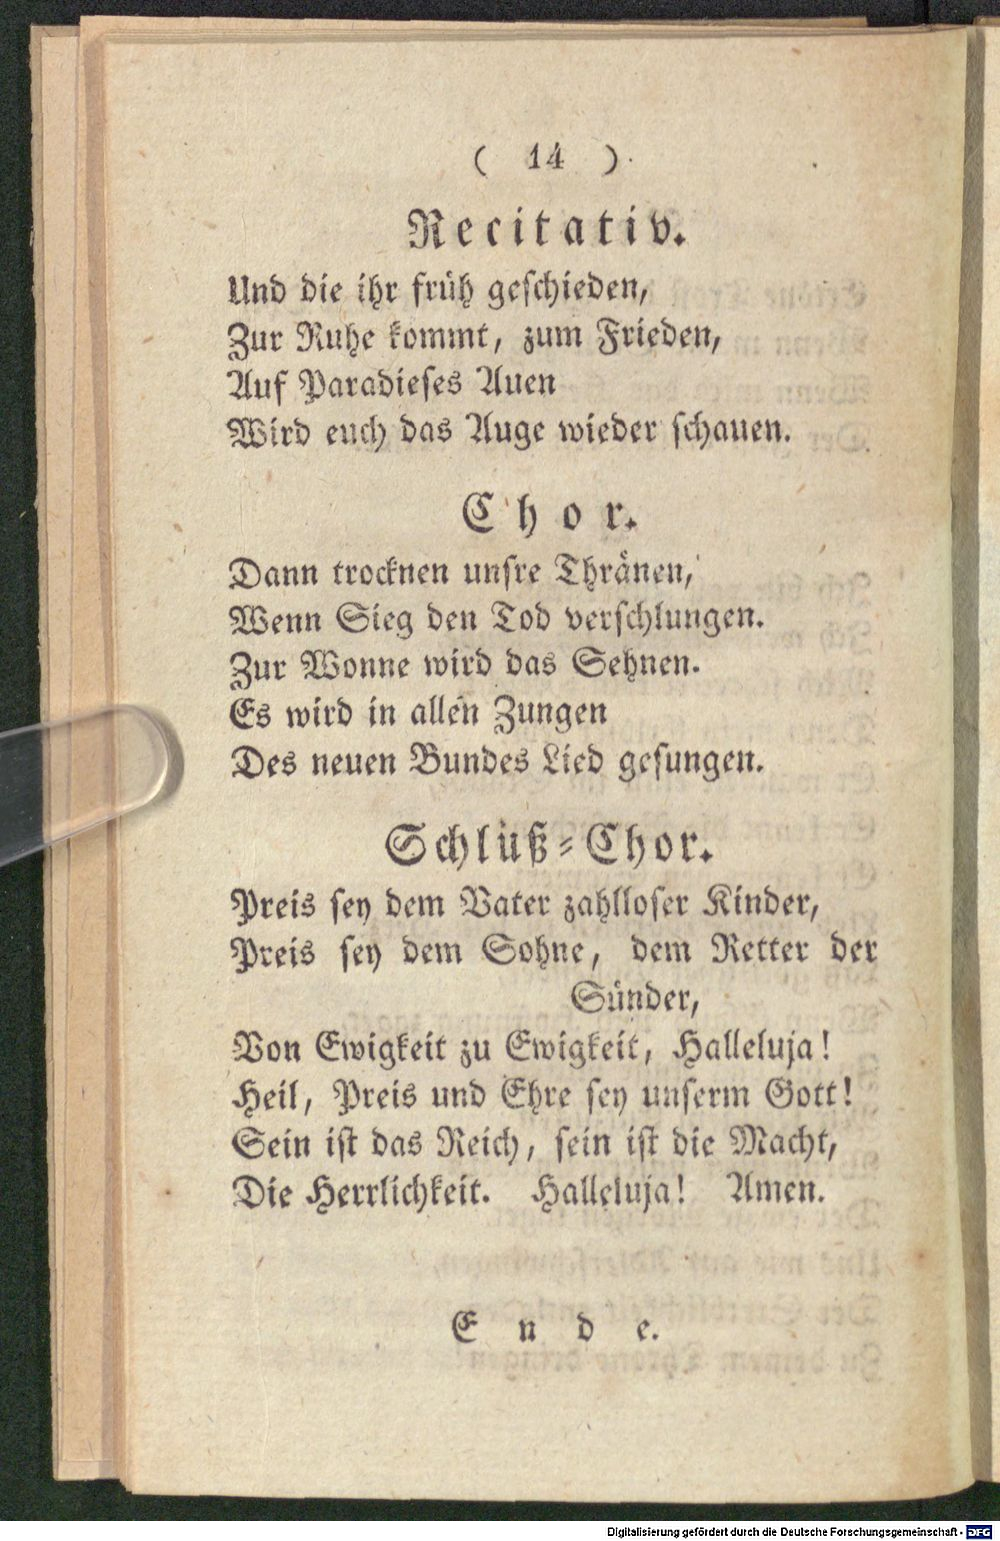 ( 14 )
Recitativ.
Und die ihr früh geschieden,
Zur Ruhe kommt, zum Frieden,
Auf Paradieses Auen
Wird euch das Auge wieder schauen.
Chor.
Dann trocknen unsre Thränen,
Wenn Sieg den Tod verschlungen.
Zur Wonne wird das Sehnen.
Es wird in allen Zungen
Des neuen Bundes Lied gesungen.
Schluß-Chor.
Preis sey dem Vater zahlloser Kinder,
Preis sey dem Sohne, dem Retter der
Sünder,
Von Ewigkeit zu Ewigkeit, Halleluja!
Heil, Preis und Ehre sey unserm Gott!
Sein ist das Reich, sein ist die Macht,
Die Herrlichkeit. Halleluja! Amen.
Ende.
Digitalisierung gefördert durch die Deutsche Forschungsgemeinschaft - DFG